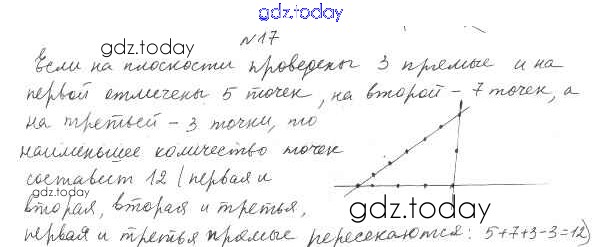 gdz.today
gdz.today
№17
Если на плоскости проведены 3 прямые и на
первой отмечены 5 точек, на второй - 7 точек, а
на третьей - 3 точки, то
наименьшее количество точек
gdz.today
составит 12 (первая и
вторая, вторая и третья,
gdz.today
первая и третья прямые пересекаются: 5+7+3-3=12)